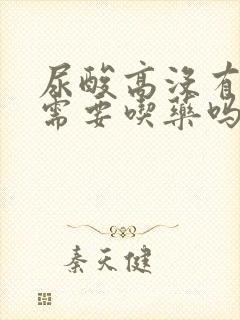 尿酸高没有
需要喫药吗
秦天健